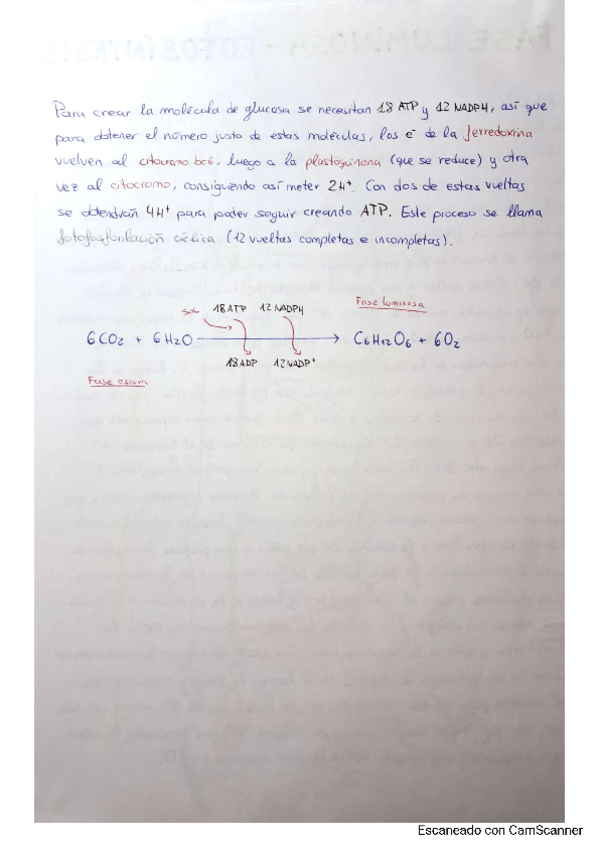 Para crear la molécula de glucosa se necesitan 18 ATP y 12 NADPH, así que
para obtener el número justo de estas moléculas, los e⁻ de la ferredoxina
vuelven al citocromo bc6, luego a la plastoquinona (que se reduce) y otra
vez al citocromo, consiguiendo así meter 2H⁺. Con dos de estas vueltas
se obtendrán 4H⁺ para poder seguir creando ATP. Este proceso se llama
fotofosforilación cíclica (12 vueltas completas e incompletas).
Sol 18 ATP 12 NADPH Fase luminosa
6CO₂ + 6H₂O → C₆H₁₂O₆ + 6O₂
18 ADP 12 NADP⁺
Fase oscura
Escaneado con CamScanner